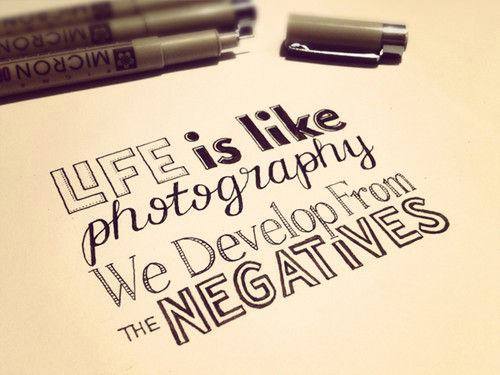 MICRON
MICRON 08
LIFE is like
photography
We Develop From
THE NEGATIVES